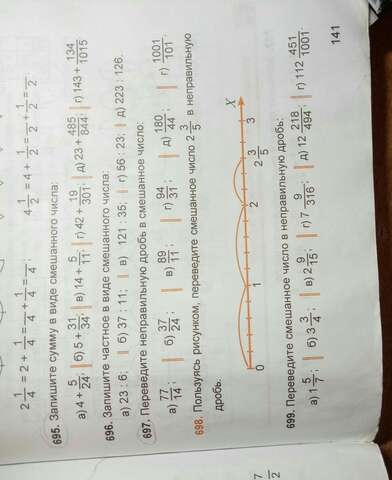 2 1/4 = 2 + 1/4 = /4 + 1/4 = /4 ;
4 1/2 = 4 + 1/2 = /2 + 1/2 = /2
695. Запишите сумму в виде смешанного числа:
а) 4 + 5/24; б) 5 + 31/34; в) 14 + 5/11; г) 42 + 19/301; д) 23 + 485/844; г) 143 + 134/1015
696. Запишите частное в виде смешанного числа:
а) 23 : 6; б) 37 : 11; в) 121 : 35; г) 56 : 23; д) 223 : 126.
697. Переведите неправильную дробь в смешанное число:
а) 77/14; б) 37/24; в) 89/11; г) 94/31; д) 180/44; г) 1001/101.
698. Пользуясь рисунком, переведите смешанное число 2 3/5 в неправильную
дробь.
0 1 2 2 3/5 3 X
699. Переведите смешанное число в неправильную дробь:
а) 1 5/7; б) 3 3/4; в) 2 9/15; г) 7 9/316; д) 12 218/494; г) 112 451/1001.
141
7/2